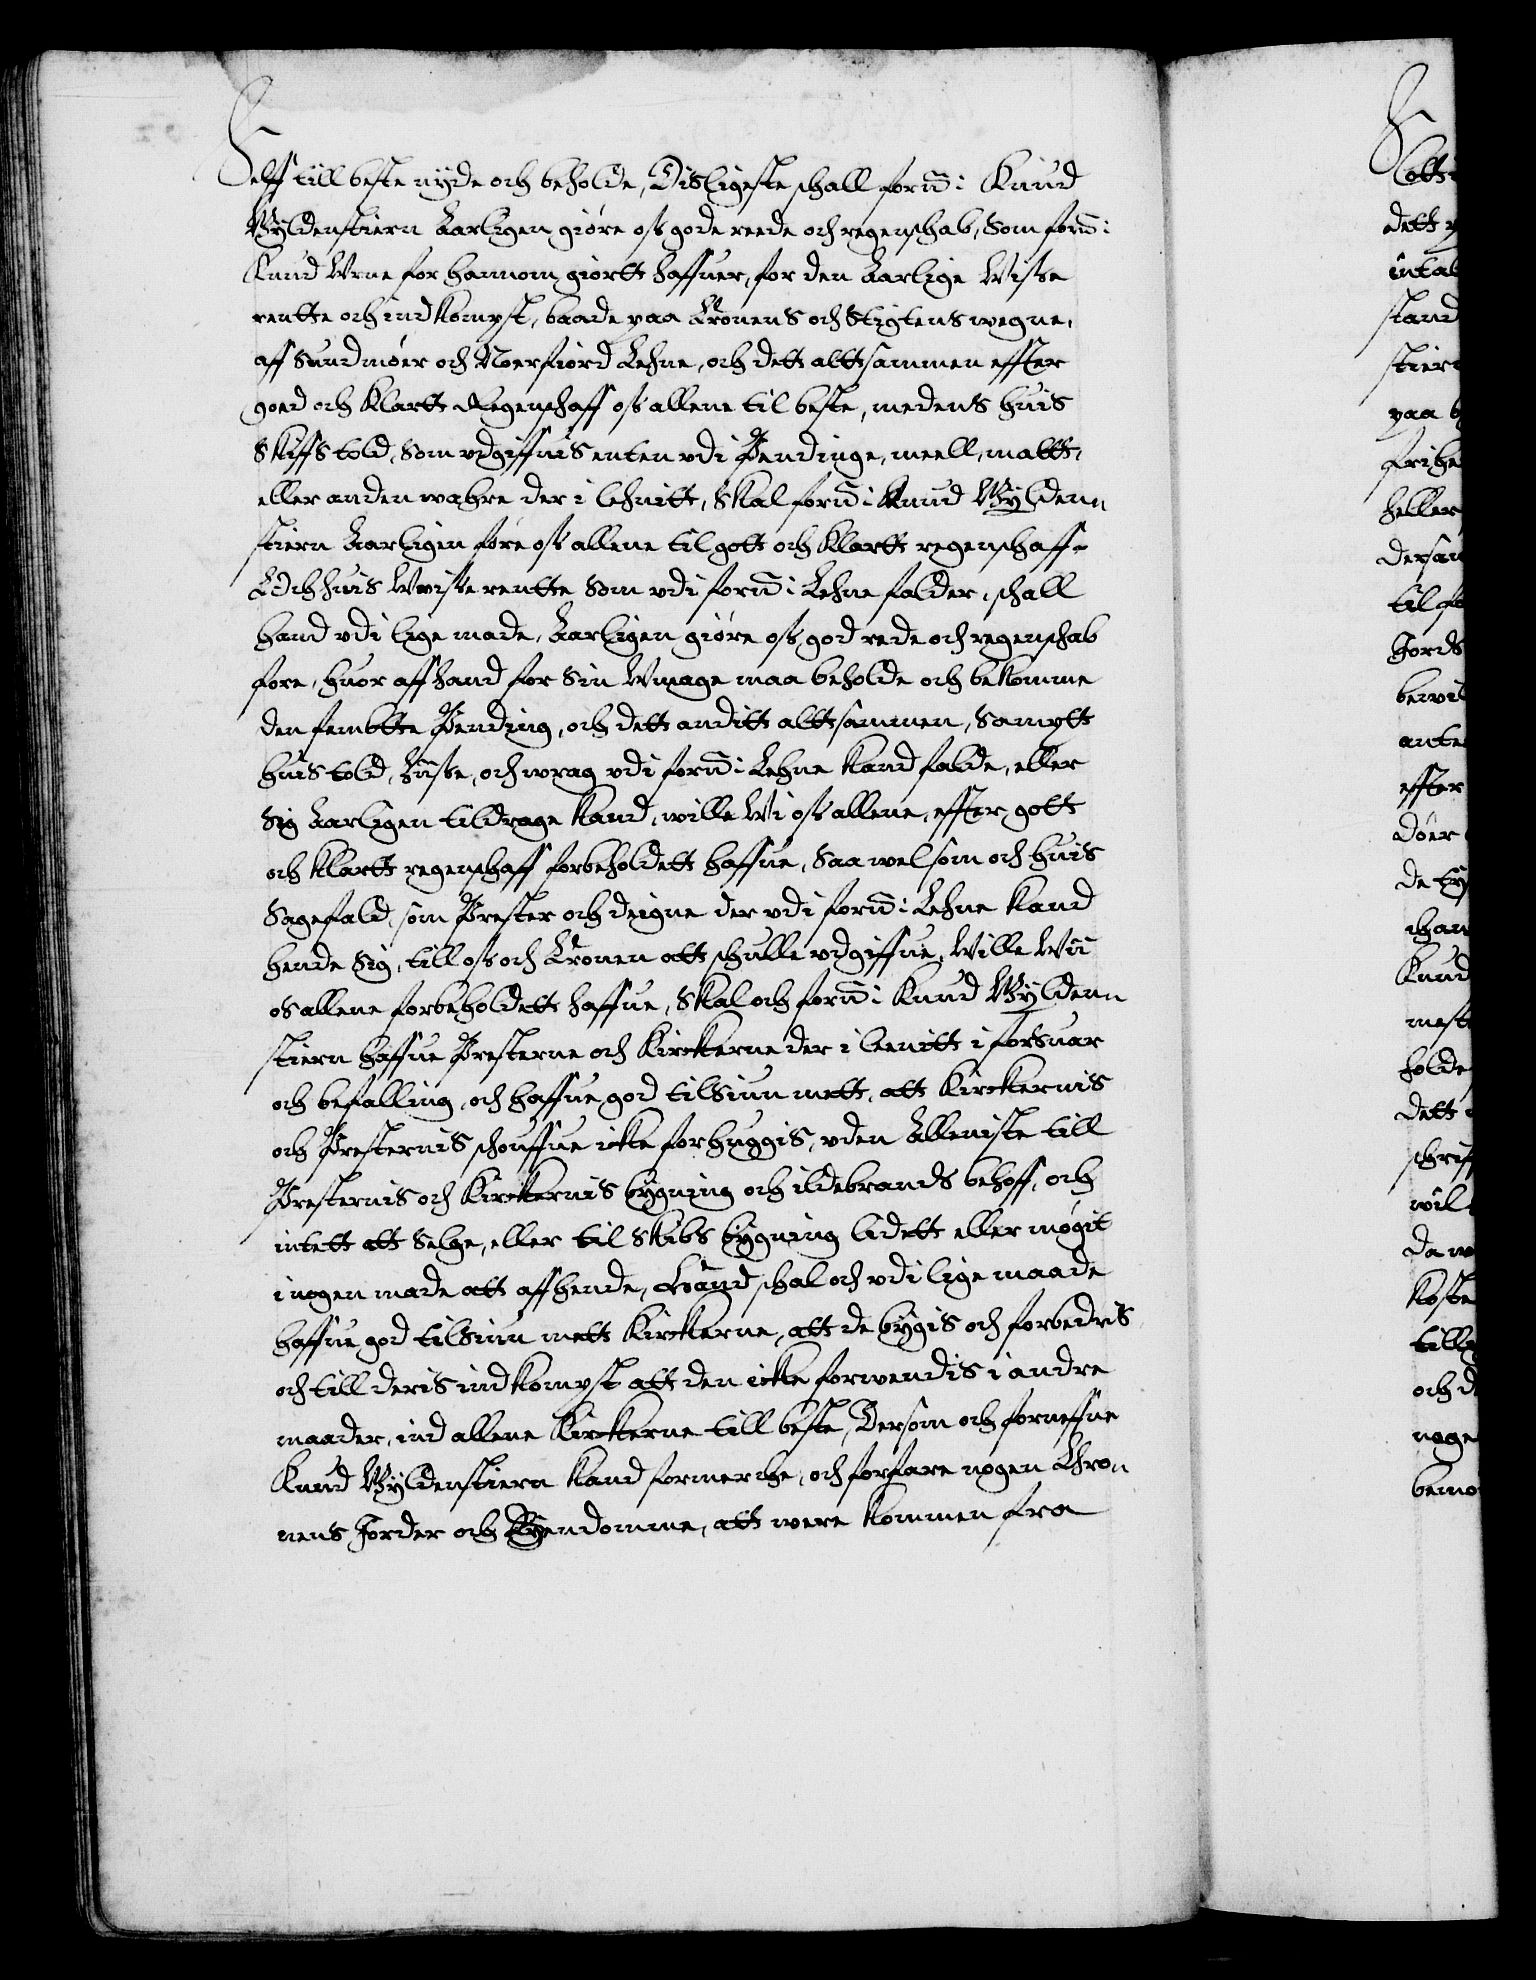 Selff till beste nyde och beholde, Disligeste schall forn: Knud
Gyldenstiern Aarligen giøre oss gode reede och regenschab, Som forn:
Knud Vrne for hannom giortt haffuer, for den Aarlige Wisse
rentte och indkompst, baade paa Cronens och Stigtens wegne,
aff Sundmøer och Noerfiord Lehne, och dett altt sammen effter
goed och klartt Regenschaff oss allene til beste, medens huis
Skiffs told, som vdgiffuis enten vdi Pendinge, meell, maltt,
eller anden wahre der i lehnitt, Skal forn: Knud Gylden„
stiern Aarligen føre oss allene til gott och klartt regenschaff-
Och huis Wuisse rentte Som vdi forn: Lehne falder, schall
hand vdi lige made, Aarligen giøre oss god rede och regenschab
fore, huor aff hand for Sin Vmage maa beholde och bekomme
den fembtte Pending, och dett anditt alttsammen, Sampt
huis told, Sisse, och wrag vdi forn: Lehne kand falde, eller
Sig Aarligen tildrage kand, wille Wi oss allene, effter gott
och klartt regenschaff forbeholdett haffue, Saa wel som och huis
Sagefald, som Prester och deigne der vdi forn: Lehne kand
hende Sig, till oss och Cronen att schulle vdgiffue, Wille Wii
os allene forbeholdett haffue, Skal och forn: Knud Gylden„
stiern haffue Presterne och Kirckerne der i leenitt i forsuar
och befalling, och haffue god tilsiun mett, att Kirckernis
och Presternis schouffue icke forhuggis, vden Alleniste till
Presternis och Kirckernis bygning och ildebrands behoff, och
intett att Selge, eller til Skibs bygning lidett eller møgit
i nogen made att affhende, Hand schal och vdi lige maade
haffue god tilsiun mett Kirckerne, att de bygis och forbedris
och till deris indkompst att den icke forwendis i andre
maader, ind allene Kirckerne till beste, Dersom och forneffne
Knud Gyldenstiern kand formerche, och forfare nogen Chro„
nens Jorder och Eyendomme, att were kommen fra